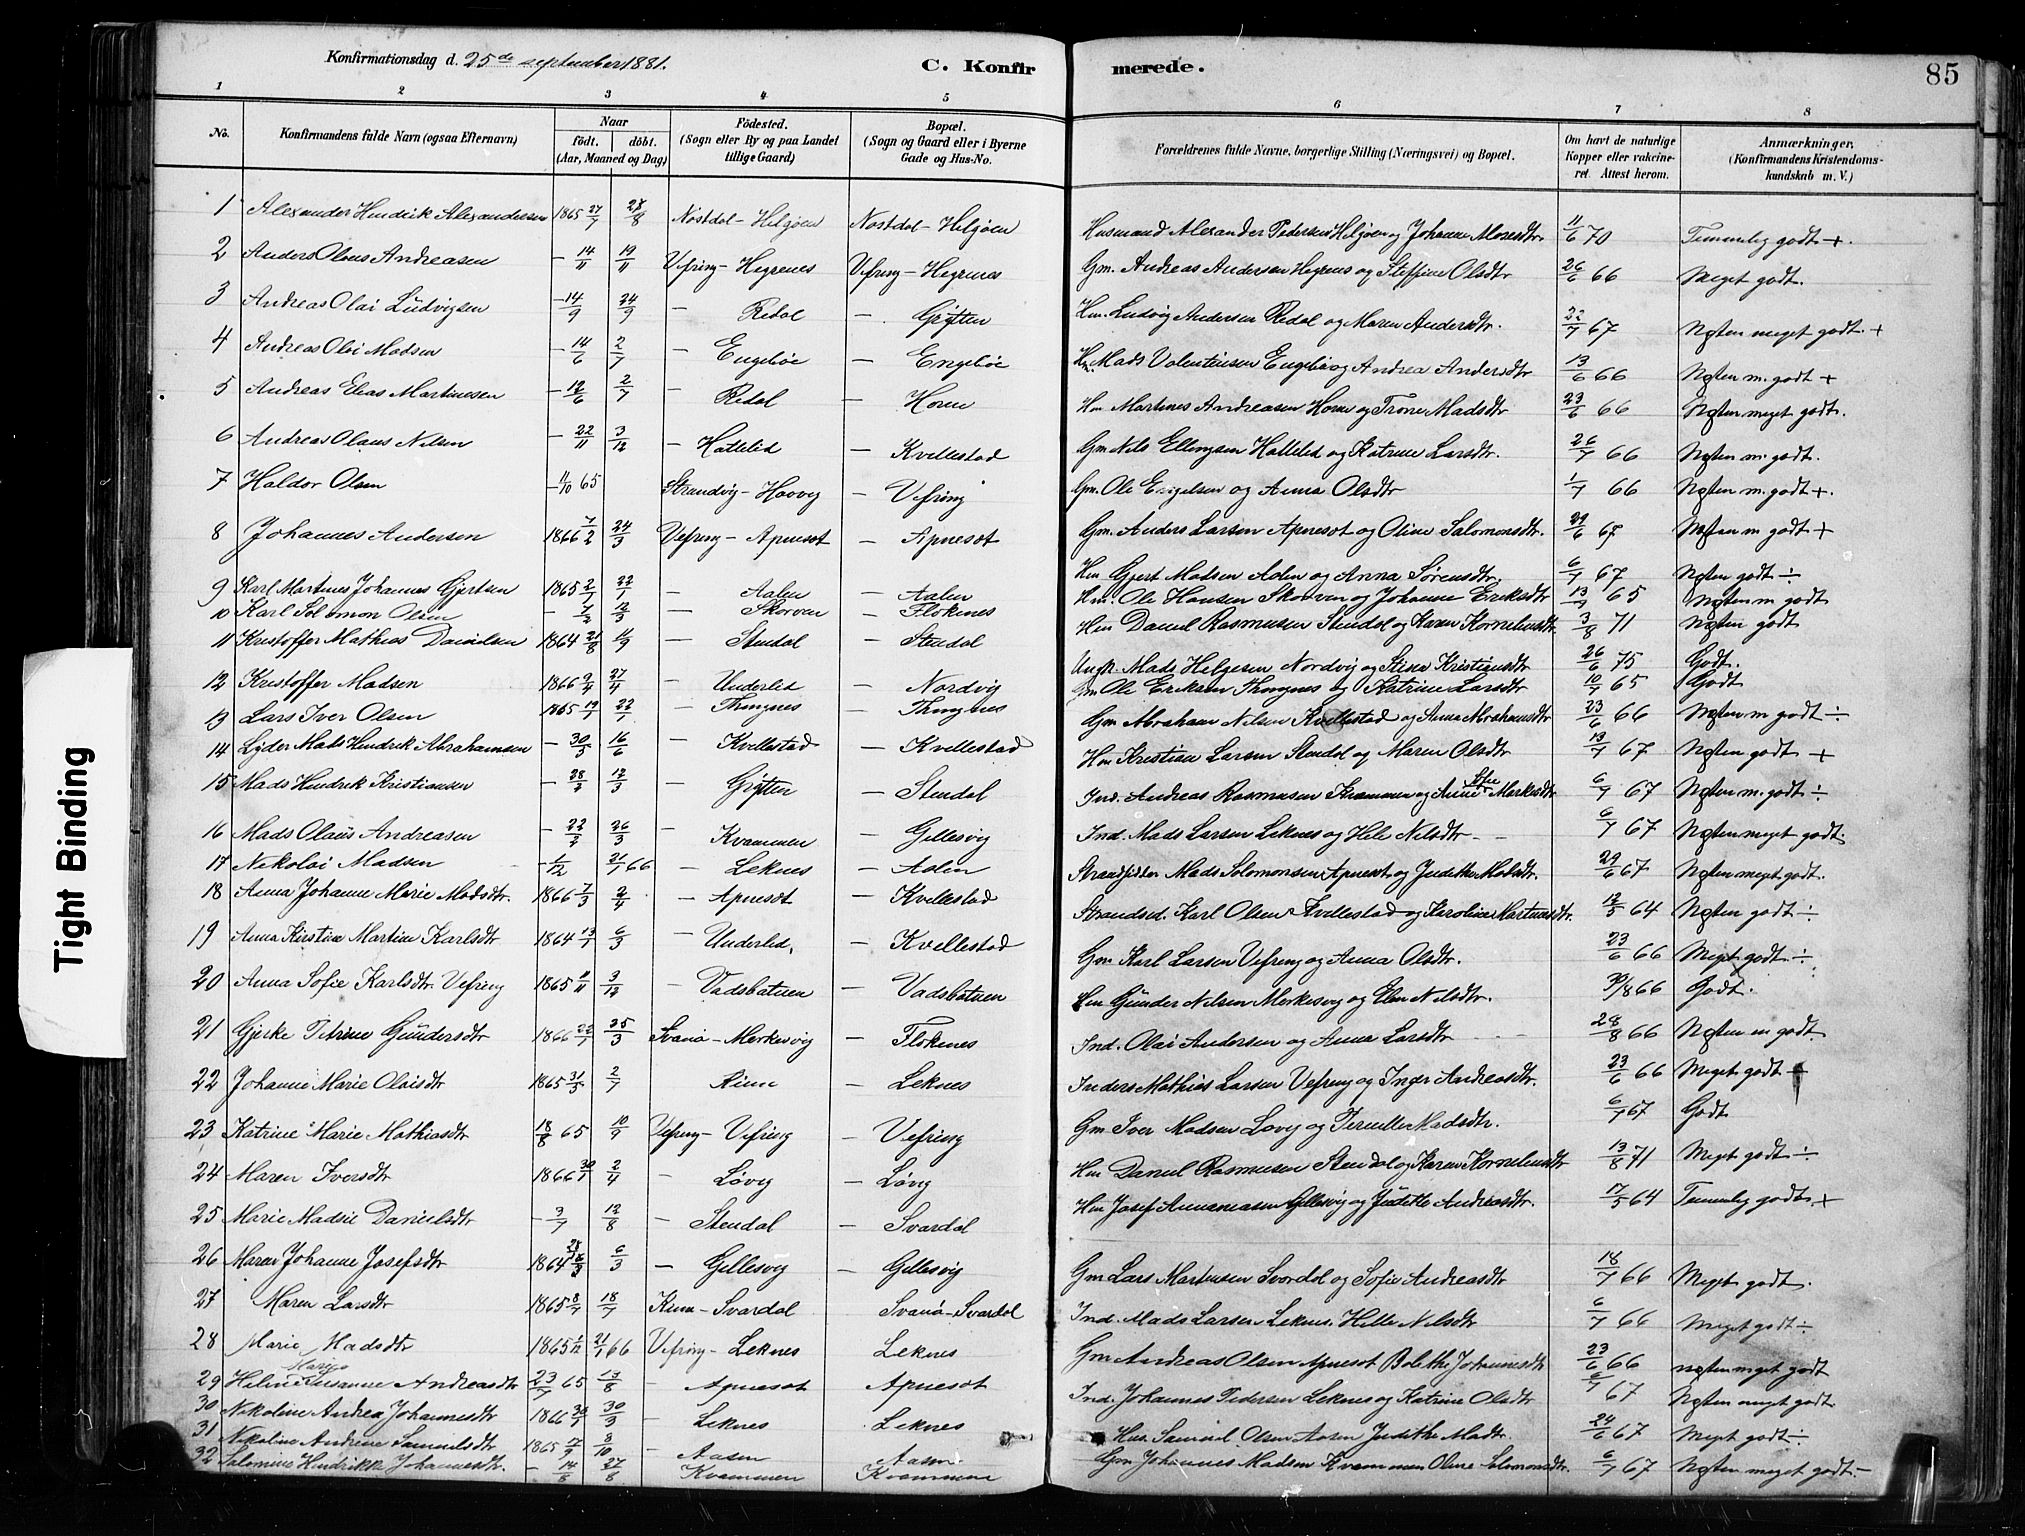 Konfirmationsdag d. 25de september 1881.
C. Konfirmerede.
85
1 2 3 4 5 6 7 8
No.
Konfirmandens fulde Navn (ogsaa Efternavn)
Naar
födt. döbt.
(Aar, Maaned og Dag)
Födested.
(Sogn eller By og paa Landet tillige Gaard)
Bopæl.
(Sogn og Gaard eller i Byerne Gade og Hus-No.
Forældrenes fulde Navne, borgerlige Stilling (Næringsvei) og Bopæl.
Om havt de naturlige Kopper eller vakcineret. Attest herom.
Anmærkninger.
(Konfirmandens Kristendomskundskab m. V.)
1 Alexander Hendrik Alexandersen 1865 27/7 27/8 Nøstdal - Helgøen Nøstdal - Helgøen Husmand Alexander Pedersen Helgøen og Johanne Mosesdtr 11/6 70 Temmelig godt +.
2 Anders Olaus Andreasen — 14/11 19/11 Vefring - Hegrenes Vefring - Hegrenes Gm. Andreas Andersen Hegrenes og Steffine Olsdtr 26/6 66 Meget godt.
3 Andreas Olai Ludvigsen — 14/9 24/9 — Redal — Grytten Hm. Ludvig Andersen Redal og Maren Andersdtr. 22/7 67 Næsten meget godt. +
4 Andreas Olai Madsen — 14/6 2/7 — Engebøe — Engebøe Hm. Mads Valentinsen Engebø og Andrea Andersdtr 13/6 66 Næsten m. godt +
5 Andreas Elias Martinesen — 12/6 2/7 — Redal — Horne Hm Martines Andreasen Horne og Trone Madsdtr 23/6 66 Næsten meget godt.
6 Andreas Olaus Nilsen — 22/11 3/12 — Hatlelid — Kvellestad Gm Nils Ellingsen Hatlelid og Katrine Larsdtr. 26/7 66 Næsten m. godt.
7 Haldor Olsen — 11/10 65 Strandvig - Hovvig — Vefring Gm. Ole Engelsen og Anna Olsdtr 1/7 66 Næsten m. godt +.
8 Johannes Andersen 1866 7/2 24/3 Vefring - Apnesøt — Apnesøt Gm. Anders Larsen Apnesøt og Oline Salomonsdtr. 29/6 67 Næsten m godt +
9 Karl Martines Johannes Gjertsen 1865 2/1 22/1 — Aalen — Aalen Hm Gjert Madsen Aalen og Anna Sørensdtr. 6/7 67 Næsten godt ÷
10 Karl Solomon Olsen — 12/3 — Skorven — Flokenes Hm. Ole Hansen Skorven og Johanne Eriksdtr 13/7 65 Næsten m godt
11 Kristoffer Mathias Danielsen 1864 21/8 4/9 — Stendal — Stendal Hm Daniel Rasmussen Stendal og Karen Korneliusdtr. 3/8 71 Næsten godt
12 Kristoffer Madsen 1866 2/4 27/4 — Underlid — Nordvig Ungk. Mads Helgesen Nordvig og Stina Kristiansdtr 26/6 75 Godt.
13 Lars Iver Olsen 1865 22/1 — Thingnes — Thingnes Gm Ole Eriksen Thingnes og Katrine Larsdtr 10/7 65 Godt
14 Lyder Mads Hendrik Abrahamsen — 30/3 16/6 — Kvellestad — Kvellestad Gm Abraham Nilsen Kvellestad og Anna Abrahamsdtr 23/6 66 Næsten m godt ÷
15 Mads Hendrik Kristiansen — 28/2 12/3 — Grytten — Stendal Hm Kristian Larsen Stendal og Maren Olsdtr 13/7 67 Næsten godt +
16 Mads Olaus Andreasen — 22/2 26/3 — Kvammen — Gillesvig Ind. Andreas Rasmusen Kvammen og Anne Sofie Markusdtr 6/7 67 Næsten m. godt ÷
17 Nikolai Madsen — 1/12 21/1 66 — Leknes — Aalen Ind. Mads Larsen Leknes og Hele Nilsdtr 6/7 67 Næsten meget godt.
18 Anna Johanne Marie Madsdtr. 1866 7/3 2/4 — Apnesøt — Kvellestad Strandsidder Mads Solomonsen Apnesøt og Judithe 29/6 67 Næsten meget godt.
19 Anna Kirstine Martine Karlsdtr 1864 13/1 6/3 — Underlid, — Kvellestad Strandsid. Karl Olsen Kvellestad og Karoline Martinusdtr. 12/5 64 Næsten godt ÷
20 Anna Sofie Karlsdtr. Vefring 1865 11/11 3/12 — Vadsbatnen — Vadsbatnen Gm Karl Larsen Vefring og Anna Olsdtr. 23/6 66 Meget godt ÷
21 Gjeske Petrine Gundersdtr 1866 22/1 25/3 Svanø - Merkesvig — Flokenes Hm Gunder Nilsen Merkesvig og Nilsdtr. 30/8 66 Godt.
22 Johanne Marie Olaisdtr 1865 31/3 2/7 — Leknes Ind. Olai Andersen og Anna Larsdtr 28/8 66 Næsten m godt.
23 Katrine Marie Mathiasdtr 18/8 65 10/9 Vefring - Vefring — Vefring Inders Mathias Larsen Vefring og Inger Andreasdtr. 23/6 66 Meget godt +
24 Maren Iversdtr 1866 30/1 2/4 — Løvig — Løvig Gm Iver Madsen Løvig og Pernille Madsdtr. 6/7 67 Godt
25 Marie Madsie Danielsdtr — 3/7 12/8 — Stendal — Svardal Hm Daniel Rasmusen Stendal og Karen Korneliusdtr 13/8 71 Meget godt ÷
26 Maren Johanne Josefsdtr 1864 6/3 — Gillesvig — Gillesvig Hm Josef Annaniasen Gillesvig og Judithe Andreasdtr. 17/5 64 Temmelig godt +
27 Maren Larsdtr 1865 8/7 18/7 Kinn - Svardal Svanø - Svardal Gm Lars Martinsen Svardal og Sofie Andreasdtr 18/7 66 Meget godt.
28 Marie Madsdtr 1865 1/12 21/1 66 Vefring - Leknes Leknes Ind. Mads Larsen Leknes, Helle Nilsdtr 6/7 66 Meget godt ÷
29 Helene Marie Susanne Andreasdtr 23/7 65 13/8 — Apnesøt Apnesøt Gm Andreas Olsen Apnesøt Bolethe Johannesdtr 23/6 66 næsten meget godt
30 Nikoline Andrea Johannesdtr 1866 30/1 30/3 — Leknes Leknes Ind. Johannes Pedersen Leknes og Katrine Olsdtr 6/7 67 Næsten meget godt
31 Nikoline Andrine Samuelsdtr 1865 17/9 8/10 — Aasen Aasen Hus. Samuel Olsen Aasen Judithe Madsdtr. 24/6 67 Meget godt ÷
32 Salomine Hendrikke Johannesdtr. — 14/8 27/8 — Kvammen Kvammen Gm Johannes Madsen Kvammen Oline Salomonsdtr. 6/7 67 Næsten meget godt. -
Tight Binding